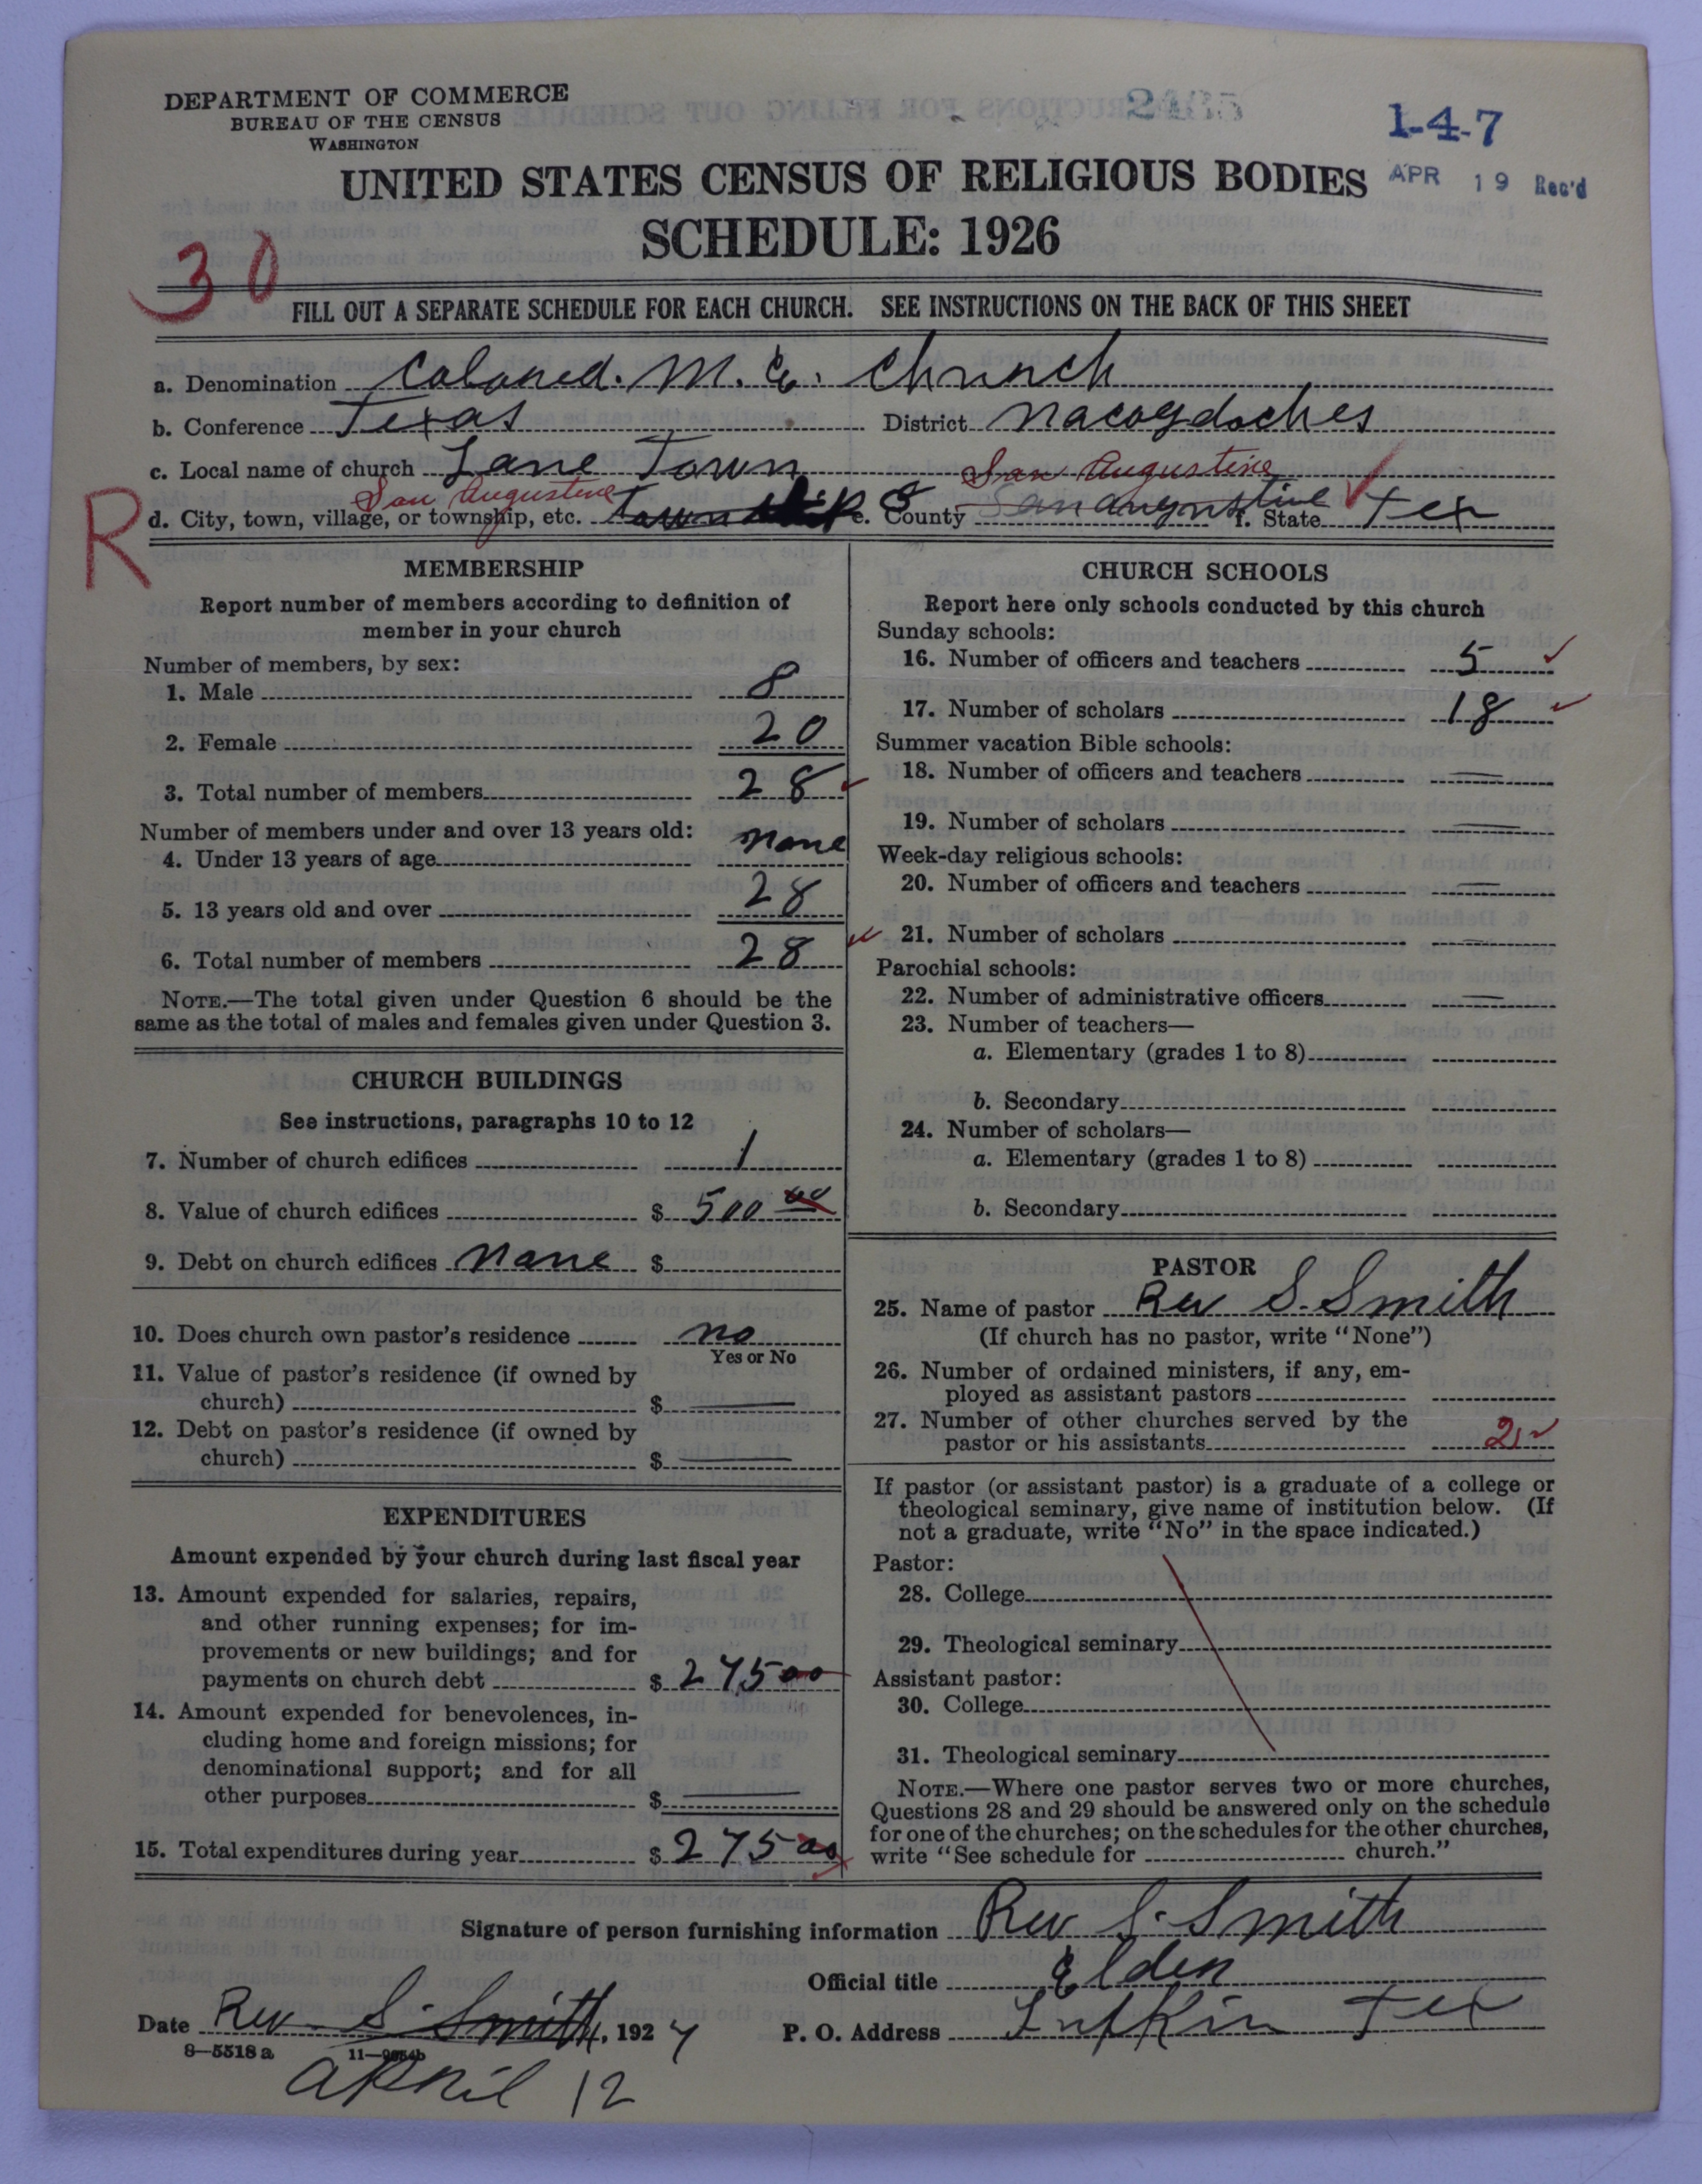 DEPARTMENT OF COMMERCE
BUREAU OF THE CENSUS
WASHINGTON
1-4-7
APR 19 Rec'd
UNITED STATES CENSUS OF RELIGIOUS BODIES
SCHEDULE: 1926
30
FILL OUT A SEPARATE SCHEDULE FOR EACH CHURCH. SEE INSTRUCTIONS ON THE BACK OF THIS SHEET
a. Denomination Colored. M. E. Church
b. Conference Texas District Nacogdoches
c. Local name of church Lane Town
San Augustine San Augustine
R d. City, town, village, or township, etc. Township e. County San Augustine f. State Tex
MEMBERSHIP
Report number of members according to definition of
member in your church
Number of members, by sex:
1. Male 8
2. Female 20
3. Total number of members 28
Number of members under and over 13 years old:
4. Under 13 years of age none
5. 13 years old and over 28
6. Total number of members 28
NOTE.—The total given under Question 6 should be the
same as the total of males and females given under Question 3.
CHURCH BUILDINGS
See instructions, paragraphs 10 to 12
7. Number of church edifices 1
8. Value of church edifices $ 500 00
9. Debt on church edifices None $
10. Does church own pastor's residence no
Yes or No
11. Value of pastor's residence (if owned by
church) $ —
12. Debt on pastor's residence (if owned by
church) $ —
EXPENDITURES
Amount expended by your church during last fiscal year
13. Amount expended for salaries, repairs,
and other running expenses; for im-
provements or new buildings; and for
payments on church debt $ 275 00
14. Amount expended for benevolences, in-
cluding home and foreign missions; for
denominational support; and for all
other purposes $ —
15. Total expenditures during year $ 275 00
CHURCH SCHOOLS
Report here only schools conducted by this church
Sunday schools:
16. Number of officers and teachers 5
17. Number of scholars 18
Summer vacation Bible schools:
18. Number of officers and teachers —
19. Number of scholars —
Week-day religious schools:
20. Number of officers and teachers —
21. Number of scholars —
Parochial schools:
22. Number of administrative officers —
23. Number of teachers—
a. Elementary (grades 1 to 8)
b. Secondary
24. Number of scholars—
a. Elementary (grades 1 to 8)
b. Secondary
PASTOR
25. Name of pastor Rev S. Smith
(If church has no pastor, write "None")
26. Number of ordained ministers, if any, em-
ployed as assistant pastors
27. Number of other churches served by the
pastor or his assistants 2
If pastor (or assistant pastor) is a graduate of a college or
theological seminary, give name of institution below. (If
not a graduate, write "No" in the space indicated.)
Pastor:
28. College
29. Theological seminary
Assistant pastor:
30. College
31. Theological seminary
NOTE.—Where one pastor serves two or more churches,
Questions 28 and 29 should be answered only on the schedule
for one of the churches; on the schedules for the other churches,
write "See schedule for church."
Signature of person furnishing information Rev S. Smith
Official title Elder
Date Rev S. Smith, 1927 P. O. Address Lufkin Tex
8—5518 a
April 12